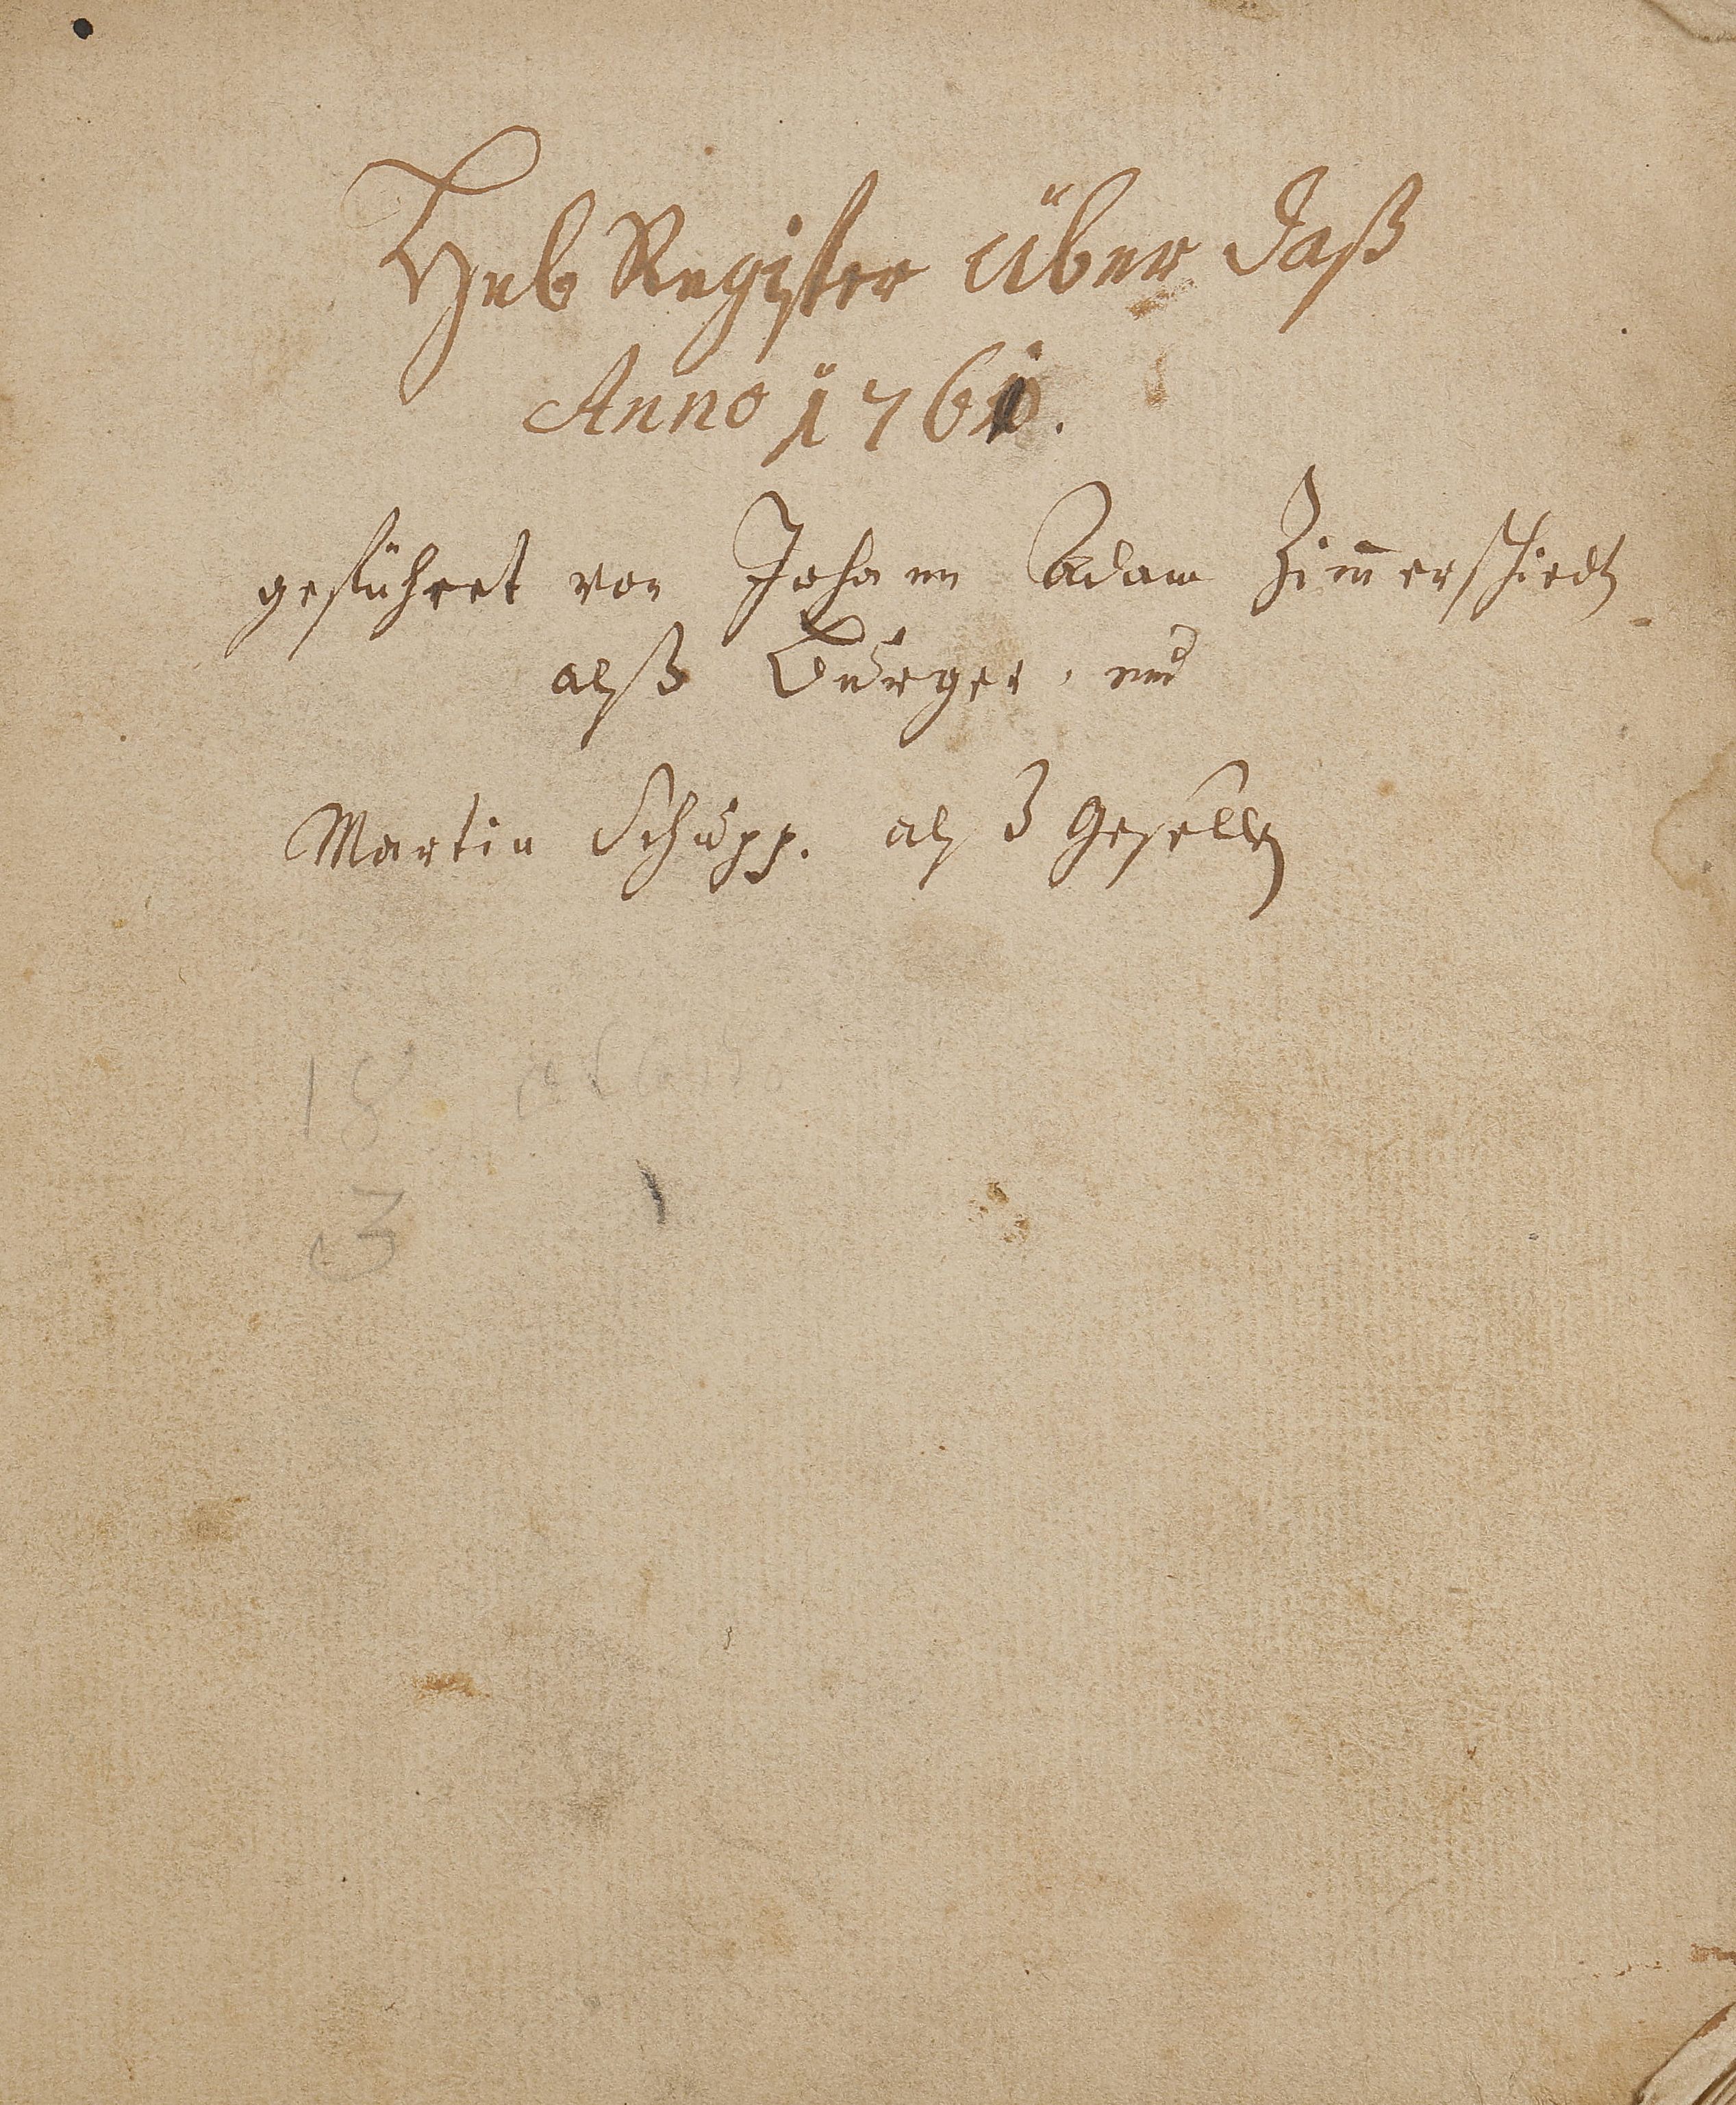 Heb Register über daß
Anno 1761.
geführet von Johann Adam Zim̄erschiedt
alß Bürger, und
Martin Schupp. alß Gesellen
18
3